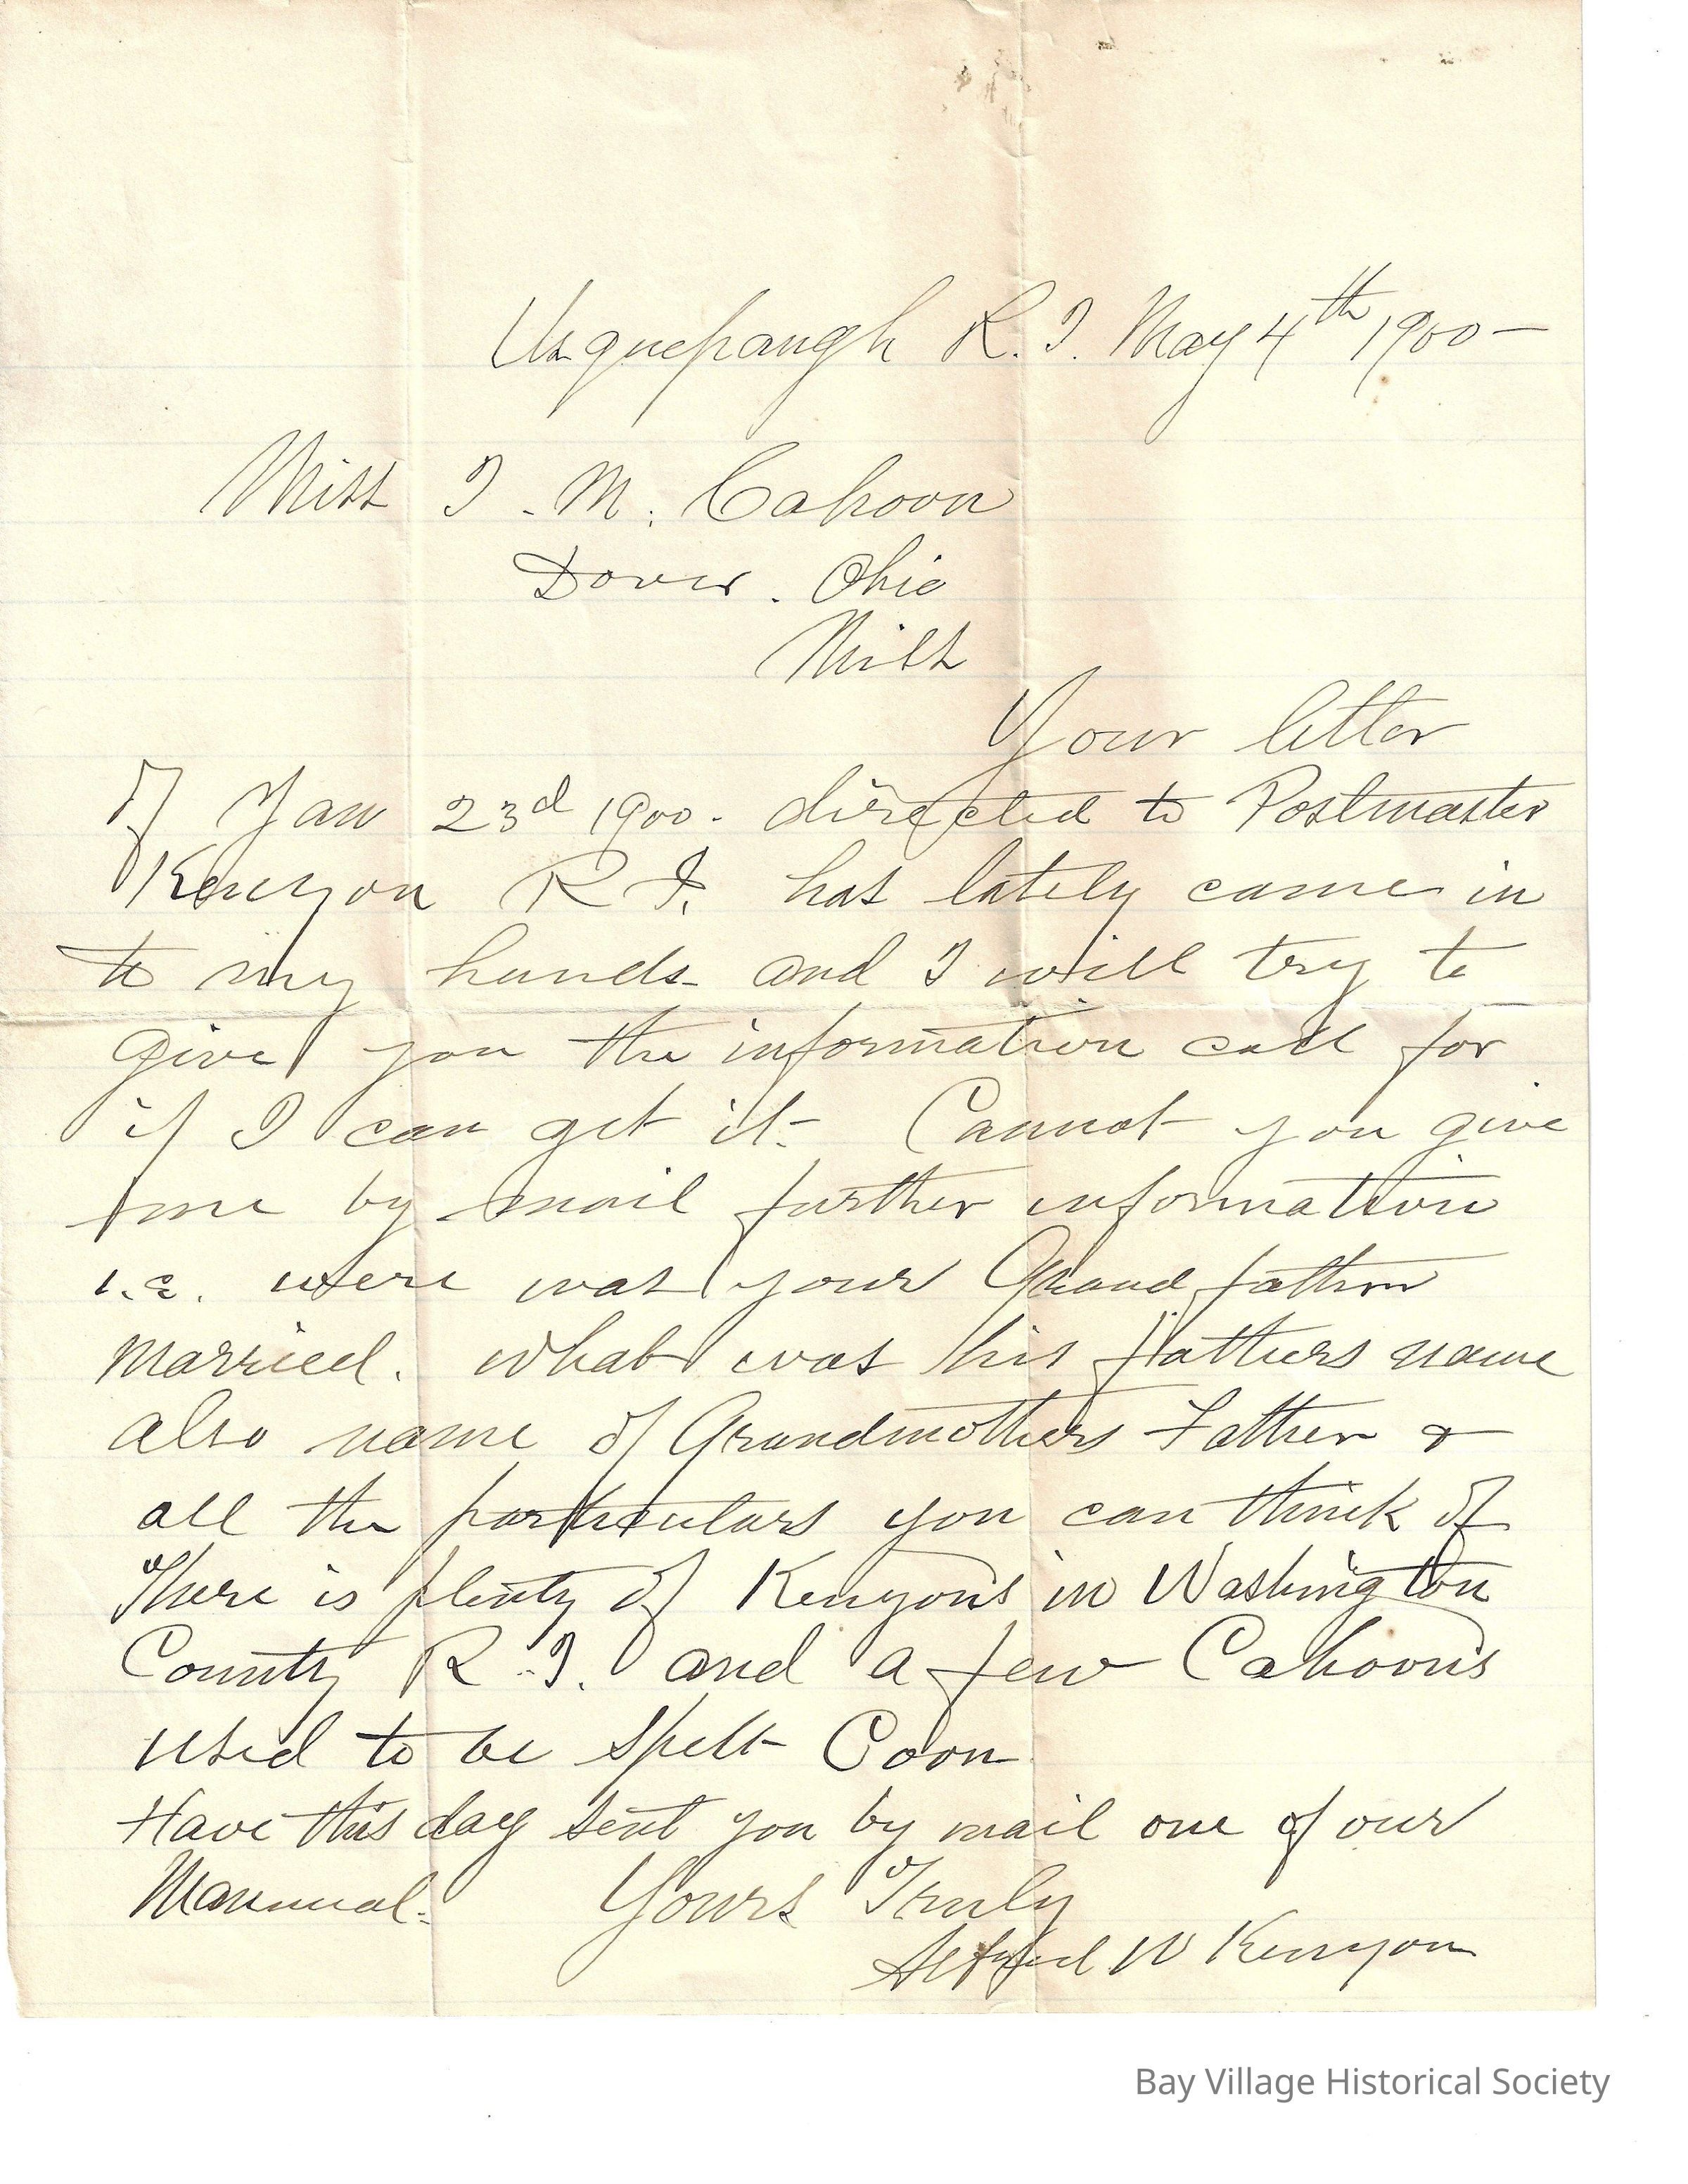 Usquepaugh R.I. May 4th 1900 -
Miss I. M. Cahoon
Dover. Ohio
Miss
Your letter
of Jan 23d 1900. directed to Postmaster
Kenyon R I. has lately came in
to my hands and I will try to
give you the information call for
if I can get it. Cannot you give
me by mail further information
i.e. were was your Grand father
married. what was his fathers name
also name of Grandmothers Father &
all the particulars you can think of
There is plenty of Kenyons in Washington
County R.I. and a few Cahoons
used to be spelt Coon
Have this day sent you by mail one of our
Mannual. Yours Truly
W Kenyon
Bay Village Historical Society